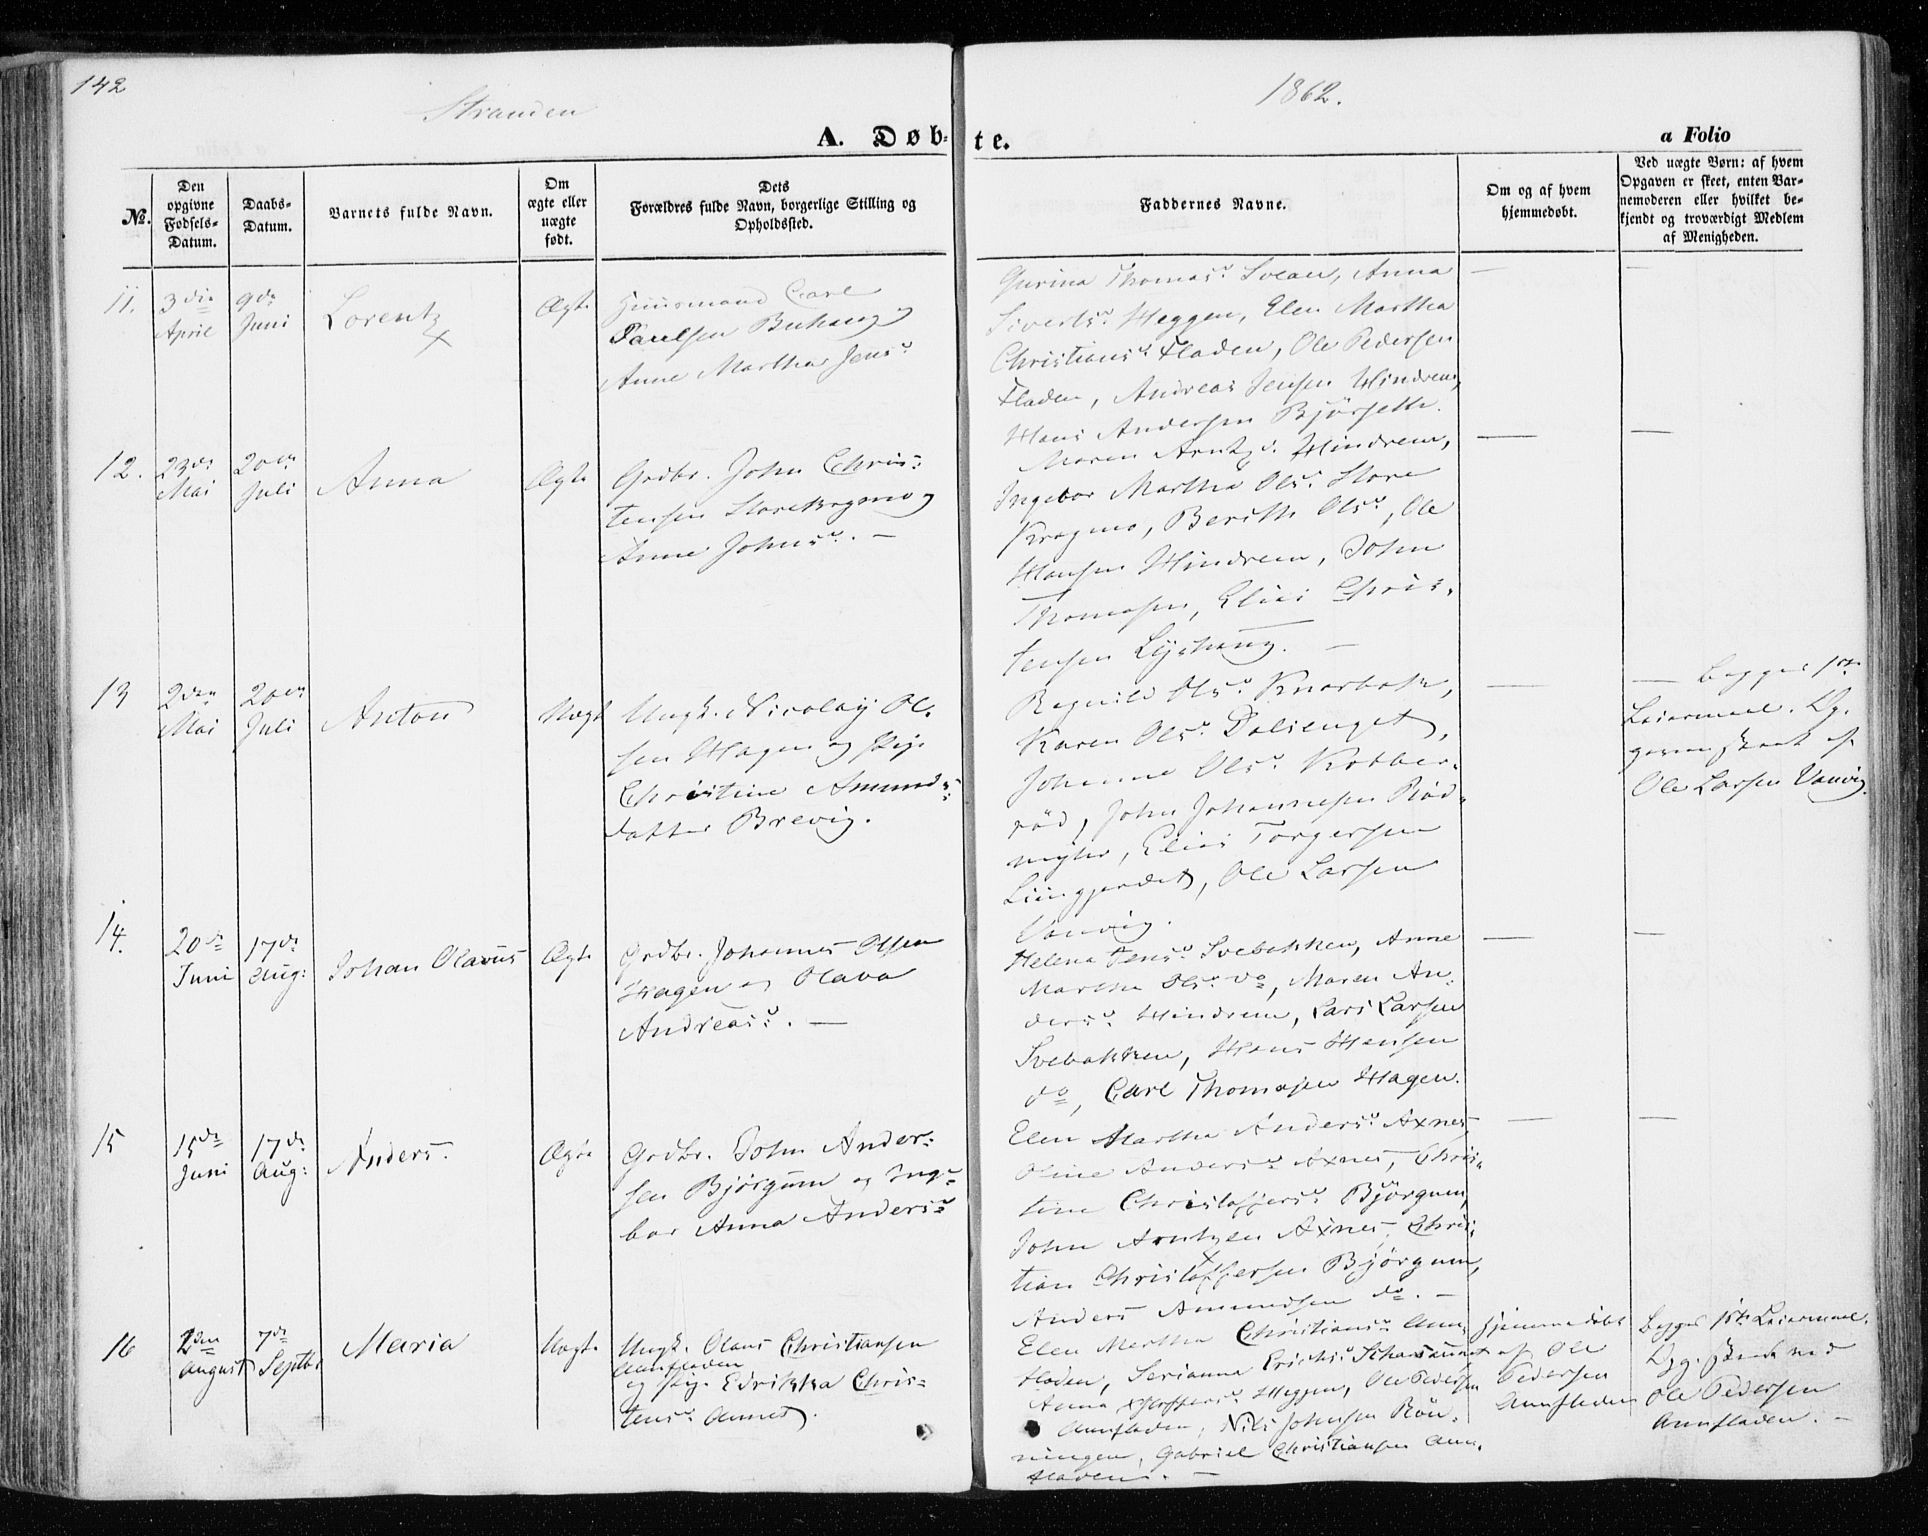 142
Stranden
1862.
A. Døb-
te.
a Folio
No.
Den opgivne Fødsels-Datum.
Daabs-Datum.
Barnets fulde Navn.
Om ægte eller uægte født.
Dets Forældres fulde Navn, borgerlige Stilling og Opholdssted.
Faddernes Navne.
Om og af hvem hjemmedøbt.
Ved uægte Børn: af hvem Opgaven er skeet, enten Barnemoderen eller hvilket bekjendt og troværdigt Medlem af Menigheden.
11.
3die April
9de Juni
Lorentz
x
Ægte
Huusmand Carl
Paulsen Buhaug og
Anne Martha Jensd.
Gurina Thomasd. Svean, Anna
Sivertsd. Heggen, Elen Martha
Christiansd. Fladen, Ole Pedersen
Fladen, Andreas Jensen Hindrem,
Hans Andersen Bjørseth.
—
—
12.
23de Mai
20de Juli
Anna
Ægte
Grdbr. John Chris-
tensen Storekragmo og
Anne Johnsd. —
Maren Arntzd. Hindrem,
Ingebor Martha Olsd. Store
Kragmo, Berith Olsd., Ole
Hansen Hindrem, John
Thomasen, Elias Chris-
tensen Lyshaug. —
—
—
13
2den Mai
20de Juli
Anton
Uægte
Ungk. Nicolay Ol-
sen Hagen og Pige
Christine Amunds-
datter Brevig.
Ragnild Olsd. Knarbak,
Karen Olsd. Dalienget,
Johanne Olsd. Kobber-
rød, John Johannesen Rød-
myhr, Elias Torgersen
Liingjerdet, Ole Larsen
Vanvig.
—
— begges 1ste
Leiermaal. Op-
gaven skeet af
Ole Larsen Vanvig.
14.
20de Juni
17de Aug:
Johan Olavus
Ægte
Grdbr. Johannes Olsen
Hagen og Olava
Andreasd. —
Helena Jensd. Svebakken, Anne
Martha Olsd. do, Maren An-
dersd. Hindrem, Lars Larsen
Svebakken, Hans Hansen
do, Carl Thomasen Hagen.
—
—
15
15de Juni
17de Aug:
Anders.
Ægte
Grdbr. John Ander-
sen Bjørgum og Inge-
bor Anna Andersd.
Elen Martha Andersd. Axnes,
Oline Andersd. Axnes, Chris-
tine Christoffersd. Bjørgum,
John Arntzen Axnes, Chris-
tian Christoffersen Bjørgum,
Anders Amundsen do. —
—
—
16
2den August
7de Septbr
Maria
Uægte
Ungk. Olaus Christiansen
Aunfladen
og Pig. Edrikka Chris-
tensd. Aunet.
Elen Martha Christiansd. Aun-
fladen, Serianna Erichsd.
Anna Heggen, Ole Pedersen
Aunfladen, Nils Johnsen Røn-
ningen, Gabriel Christiansen Aun-
fladen. —
Hjemmedøbt
af Ole
Pedersen
Aunfladen
Begges 1ste Leiermaal.
Opg. skeet ved
Ole Pedersen
Aunfladen. —